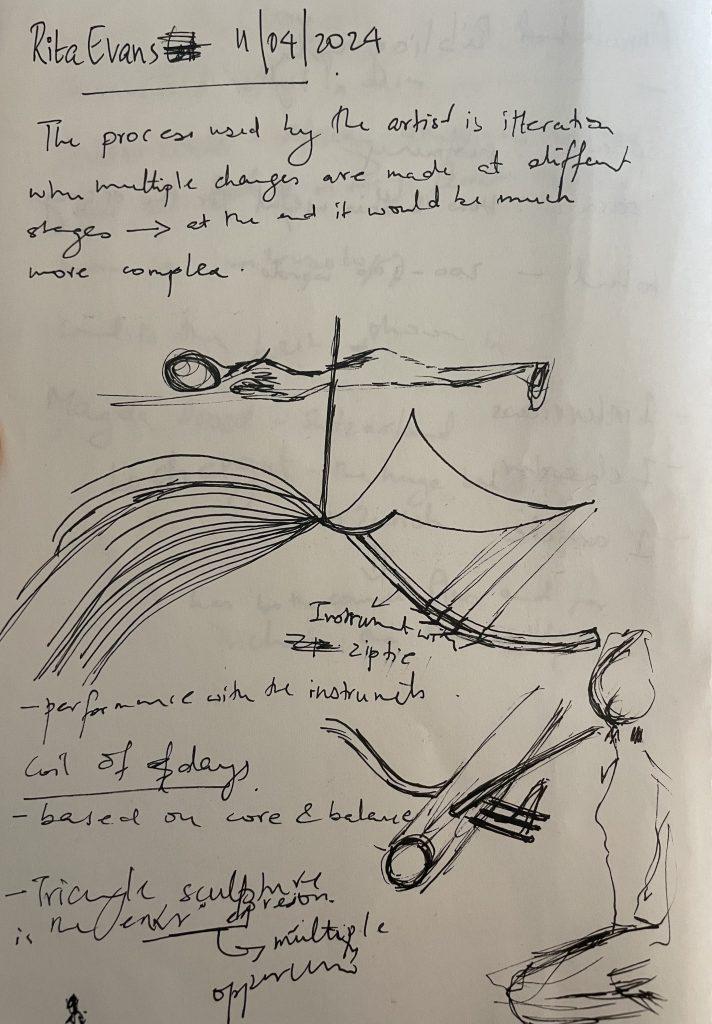 Rita Evans 11/04/2024
The process used by the artist is itteration
when multiple changes are made at different
stages → at the end it would be much
more complex.
Instrument with
ziptie
- performance with the instrumets.
Coil of days
- based on core & balance
- Triangle sculpture
is the
↳ multiple